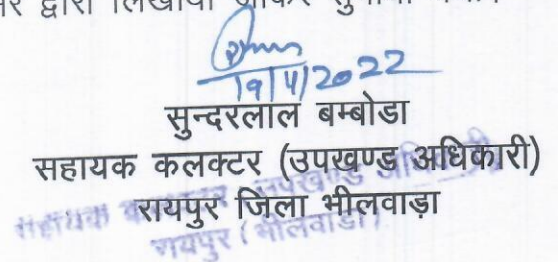 द्वारा लिखाया जाकर सुनाया
19/4/2022
सुन्दरलाल बम्बोडा
सहायक कलक्टर (उपखण्ड अधिकारी)
रायपुर जिला भीलवाड़ा
सहायक कलक्टर (उपखण्ड अधिकारी)
रायपुर (भीलवाडा)